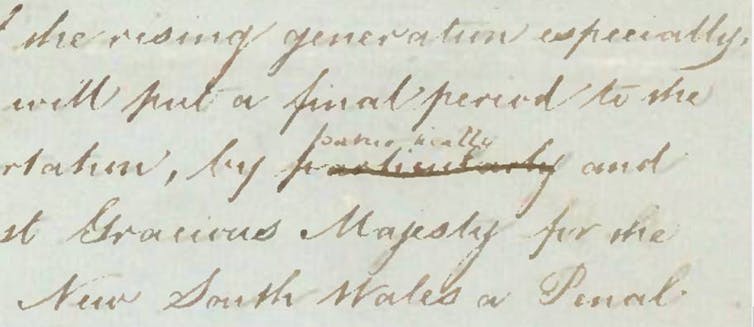 the rising generation especially,
will put a final period to the
rtation, by particularly and
st Gracious Majesty for the
New South Wales a Penal